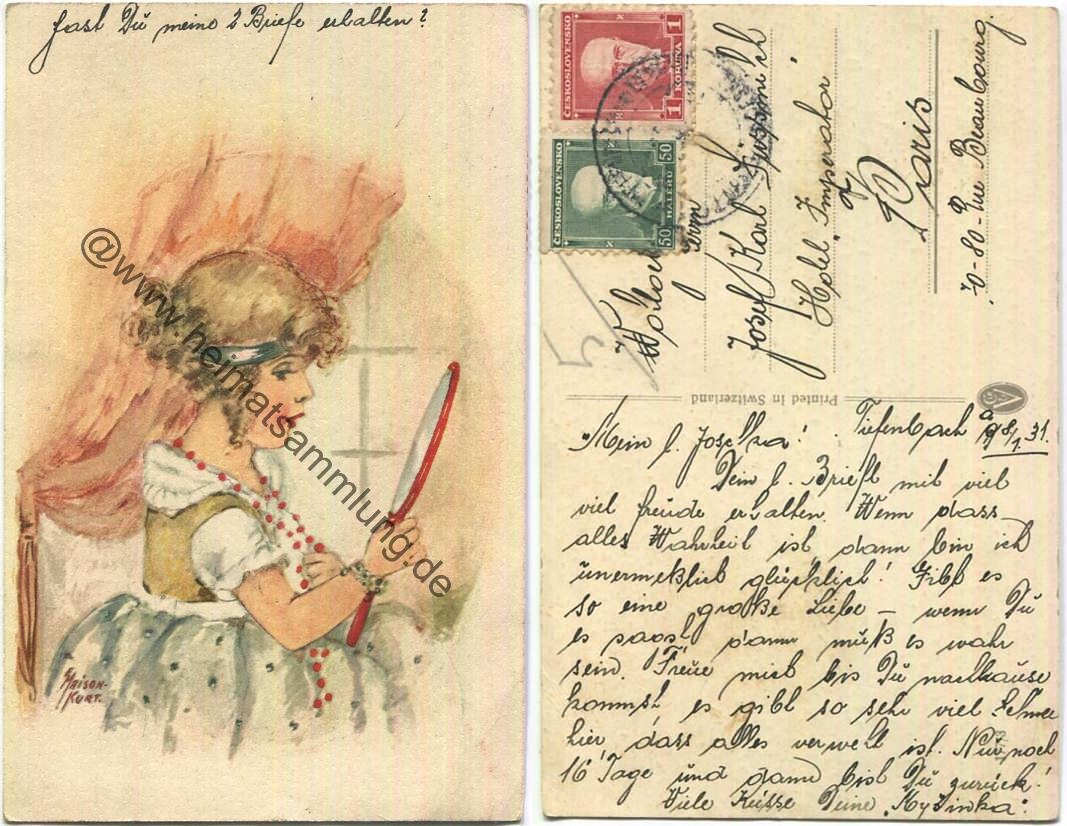 hast Du meine 2 Briefe erhalten?
@www.heimatsammlung.de
MAISON-
KURT.
ČESKOSLOVENSKO
1 KORUNA 1
ČESKOSLOVENSKO
50 HALÉŘŮ 50
Josef Karl
Hotel "Imperator"
Paris
70-80-Rue Beaubourg.
5
Printed in Switzerland
Tiefenbach 8/1.31.
"Mein l. Joselka!
Dein l. Briefl mit viel
viel freude erhalten. Wenn dass
alles Wahrheit ist dann bin ich
unermeßlich glücklich! Gibt es
so eine große Liebe – wenn Du
es sagst, dann muß es wahr
sein. Freue mich bis Du nachhause
kommst, es gibt so sehr viel Schnee
hier, dass alles verweht ist. Nur noch
16 Tage und dann bist Du zurück!
Viele Küsse Deine